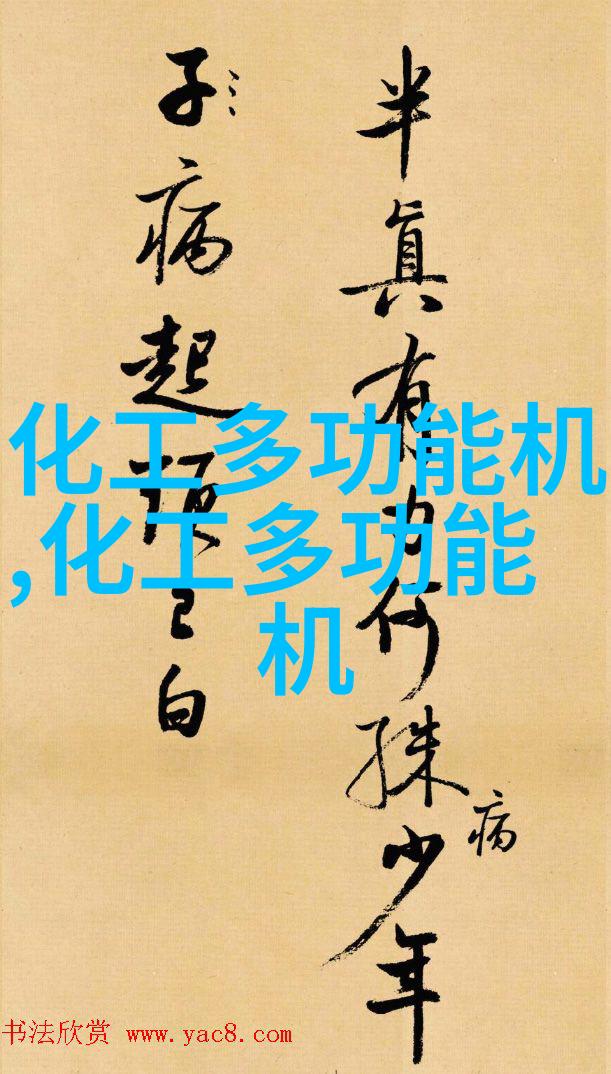 半眞有为何殊少年
病
子病起须已白
化工多功能机
,化工多功能
机
书法欣赏 www.yac8.com